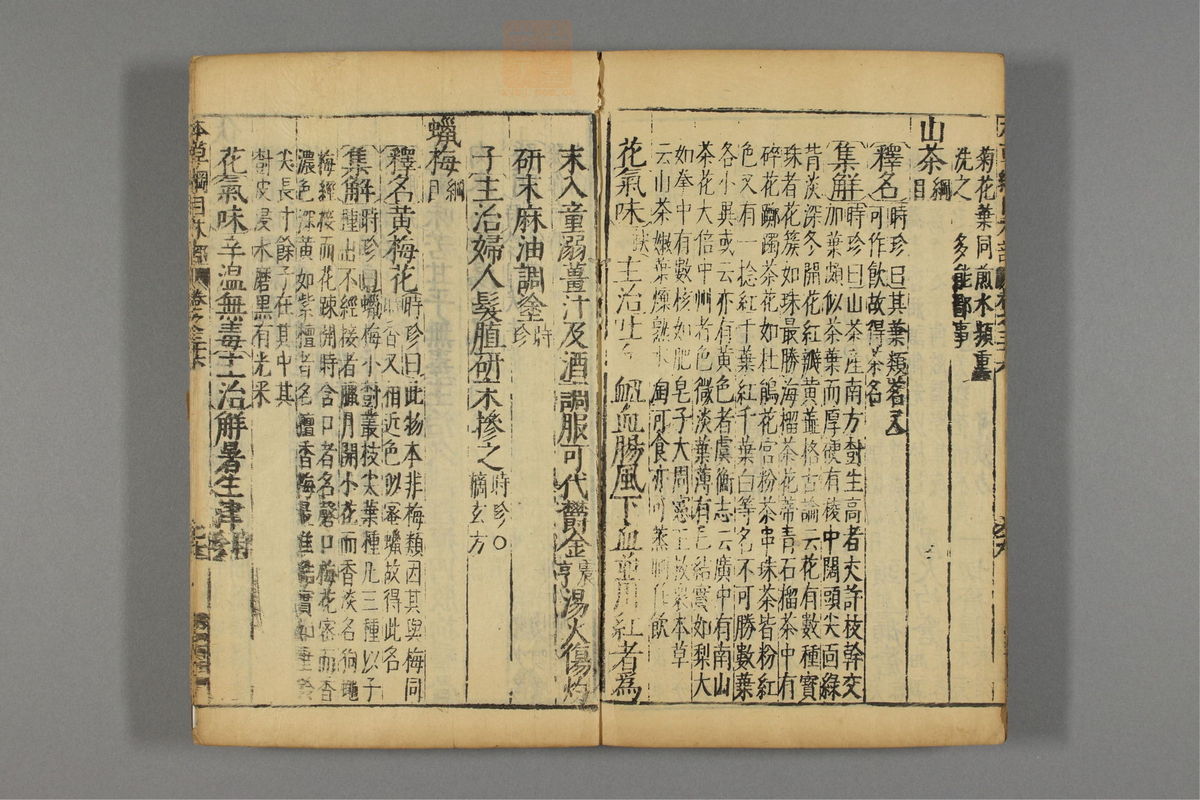 菊花葉同煎水頻熏
洗之 多能鄙事
山茶 綱目
釋名 時珍曰其葉類茗又
可作飲故得茶名
集解 時珍曰山茶産南方樹生高者丈許枝幹交
加葉頗似茶葉而厚硬有稜中闊頭尖面綠
背淡深冬開花紅瓣黃蘂格古論云花有數種寶
珠者花簇如珠最勝海榴茶花蒂青石榴茶中有
碎花躑躅茶花如杜鵑花宮粉茶串珠茶皆粉紅
色又有一捻紅千葉紅千葉白等名不可勝數葉
各小異或云亦有黃色者虞衡志云廣中有南山
茶花大倍中州者色微淡葉薄有毛結實如梨大
如拳中有數核如肥皂子大周憲王救荒本草
云山茶嫩葉煠熟水淘可食亦可蒸晒作飲
花氣味 主治吐 衄血腸風下血並用紅者爲
末入童溺薑汁及酒調服可代鬱金 震亨 湯火傷灼
研末麻油調塗 時珍
子主治婦人髮䐈研末摻之 時珍○
摘玄方
蠟梅 綱目
釋名黃梅花 時珍曰此物本非梅類因其與梅同
時香又相近色似蜜蠟故得此名
集解 時珍曰蠟梅小樹叢枝尖葉種凡三種以子
種出不經接者臘月開小花而香淡名狗蠅
梅經接而花疎開時含口者名磬口梅花密而香
濃色深黃如紫檀者名檀香梅最佳結實如垂鈴
尖長寸餘子在其中其
樹皮浸水磨黑有光采
花氣味辛溫無毒主治解暑生津 時珍
本草綱目木部 卷之三十六